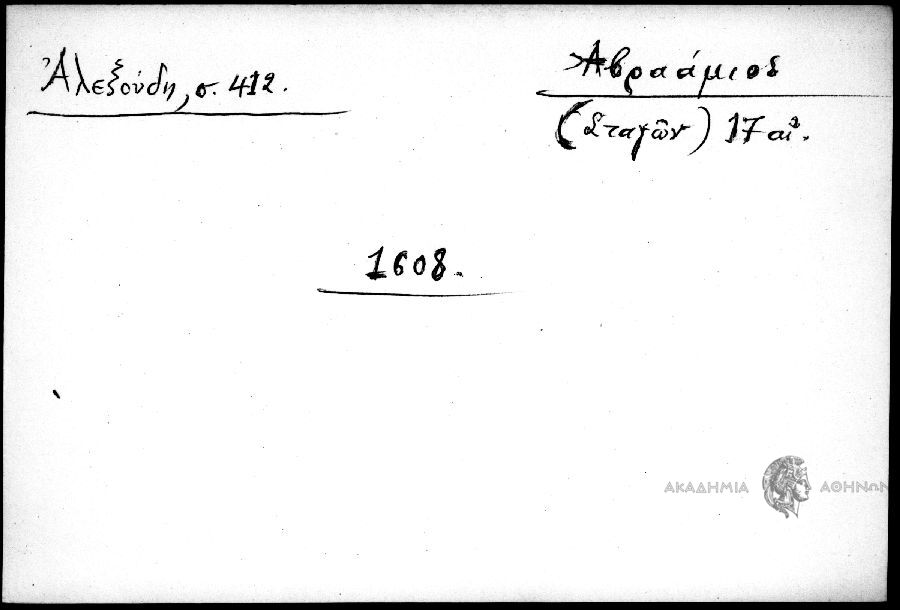 Ἀλεξούδη, σ. 412.
Ἀβραάμιος
(Σταγῶν) 17 αἰ.
1608.
ΑΚΑΔΗΜΙΑ ΑΘΗΝΩΝ